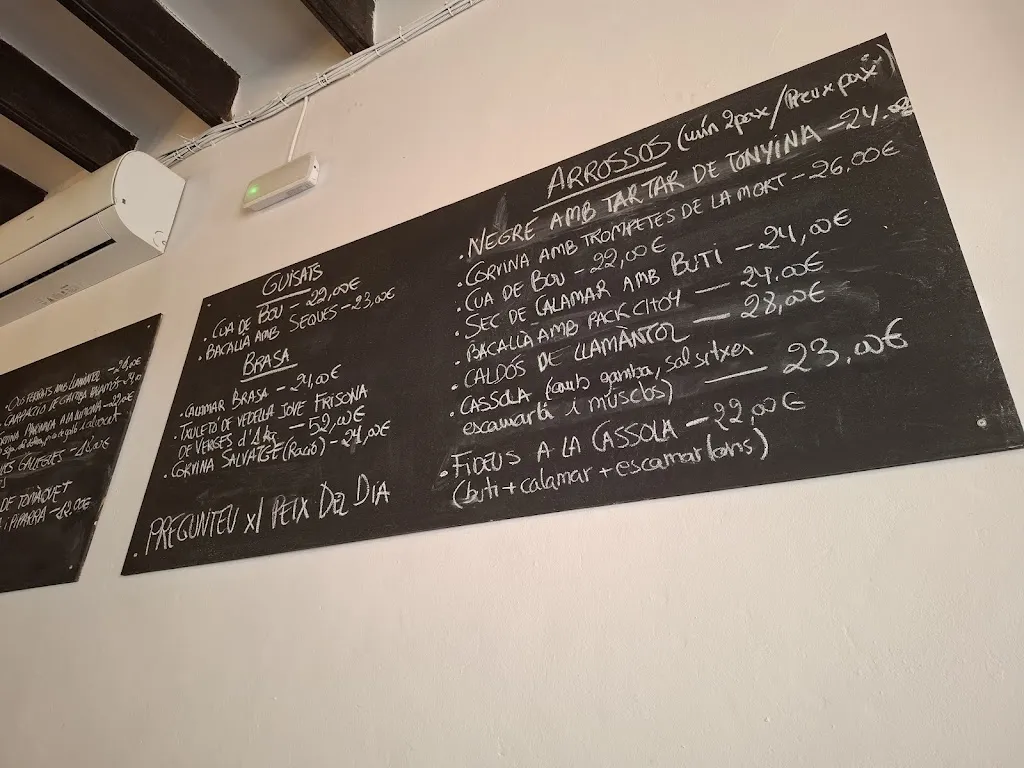 OUS FERRATS AMB LLAMÀNTOL
CARPACCIO DE
DE TOMÀQUET
I PIPARRA
GUISATS
. CUA DE BOU - 22,00€
. BACALLÀ AMB SEQUES - 23,00€
BRASA
. CALAMAR BRASA - 24,00€
. TXULETÓ DE VEDELLA JOVE FRISONA
DE VERGES d'1 kg - 52,00€
. CORVINA SALVATGE (Ració) - 24,00€
. PREGUNTEU x/ PEIX DEL DIA
ARROSSOS (mín 2pax/Preu x pax)
. NEGRE AMB TARTAR DE TONYINA - 24.00
. CORVINA AMB TROMPETES DE LA MORT - 26,00€
. CUA DE BOU - 22,00€
. SEC DE CALAMAR AMB BUTI - 24,00€
. BACALLÀ AMB PACK CHOY - 24.00€
. CALDÓS DE LLAMÀNTOL - 28,00€
. CASSOLA (amb gamba, salsitxes
escamarlà i musclos) - 23,00€
. FIDEUS A LA CASSOLA - 22,00€
(buti + calamar + escamarlans)